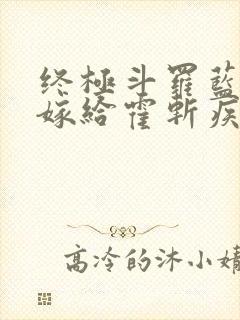 终極斗羅藍
嫁給霍斬疾
高冷的沐小婧